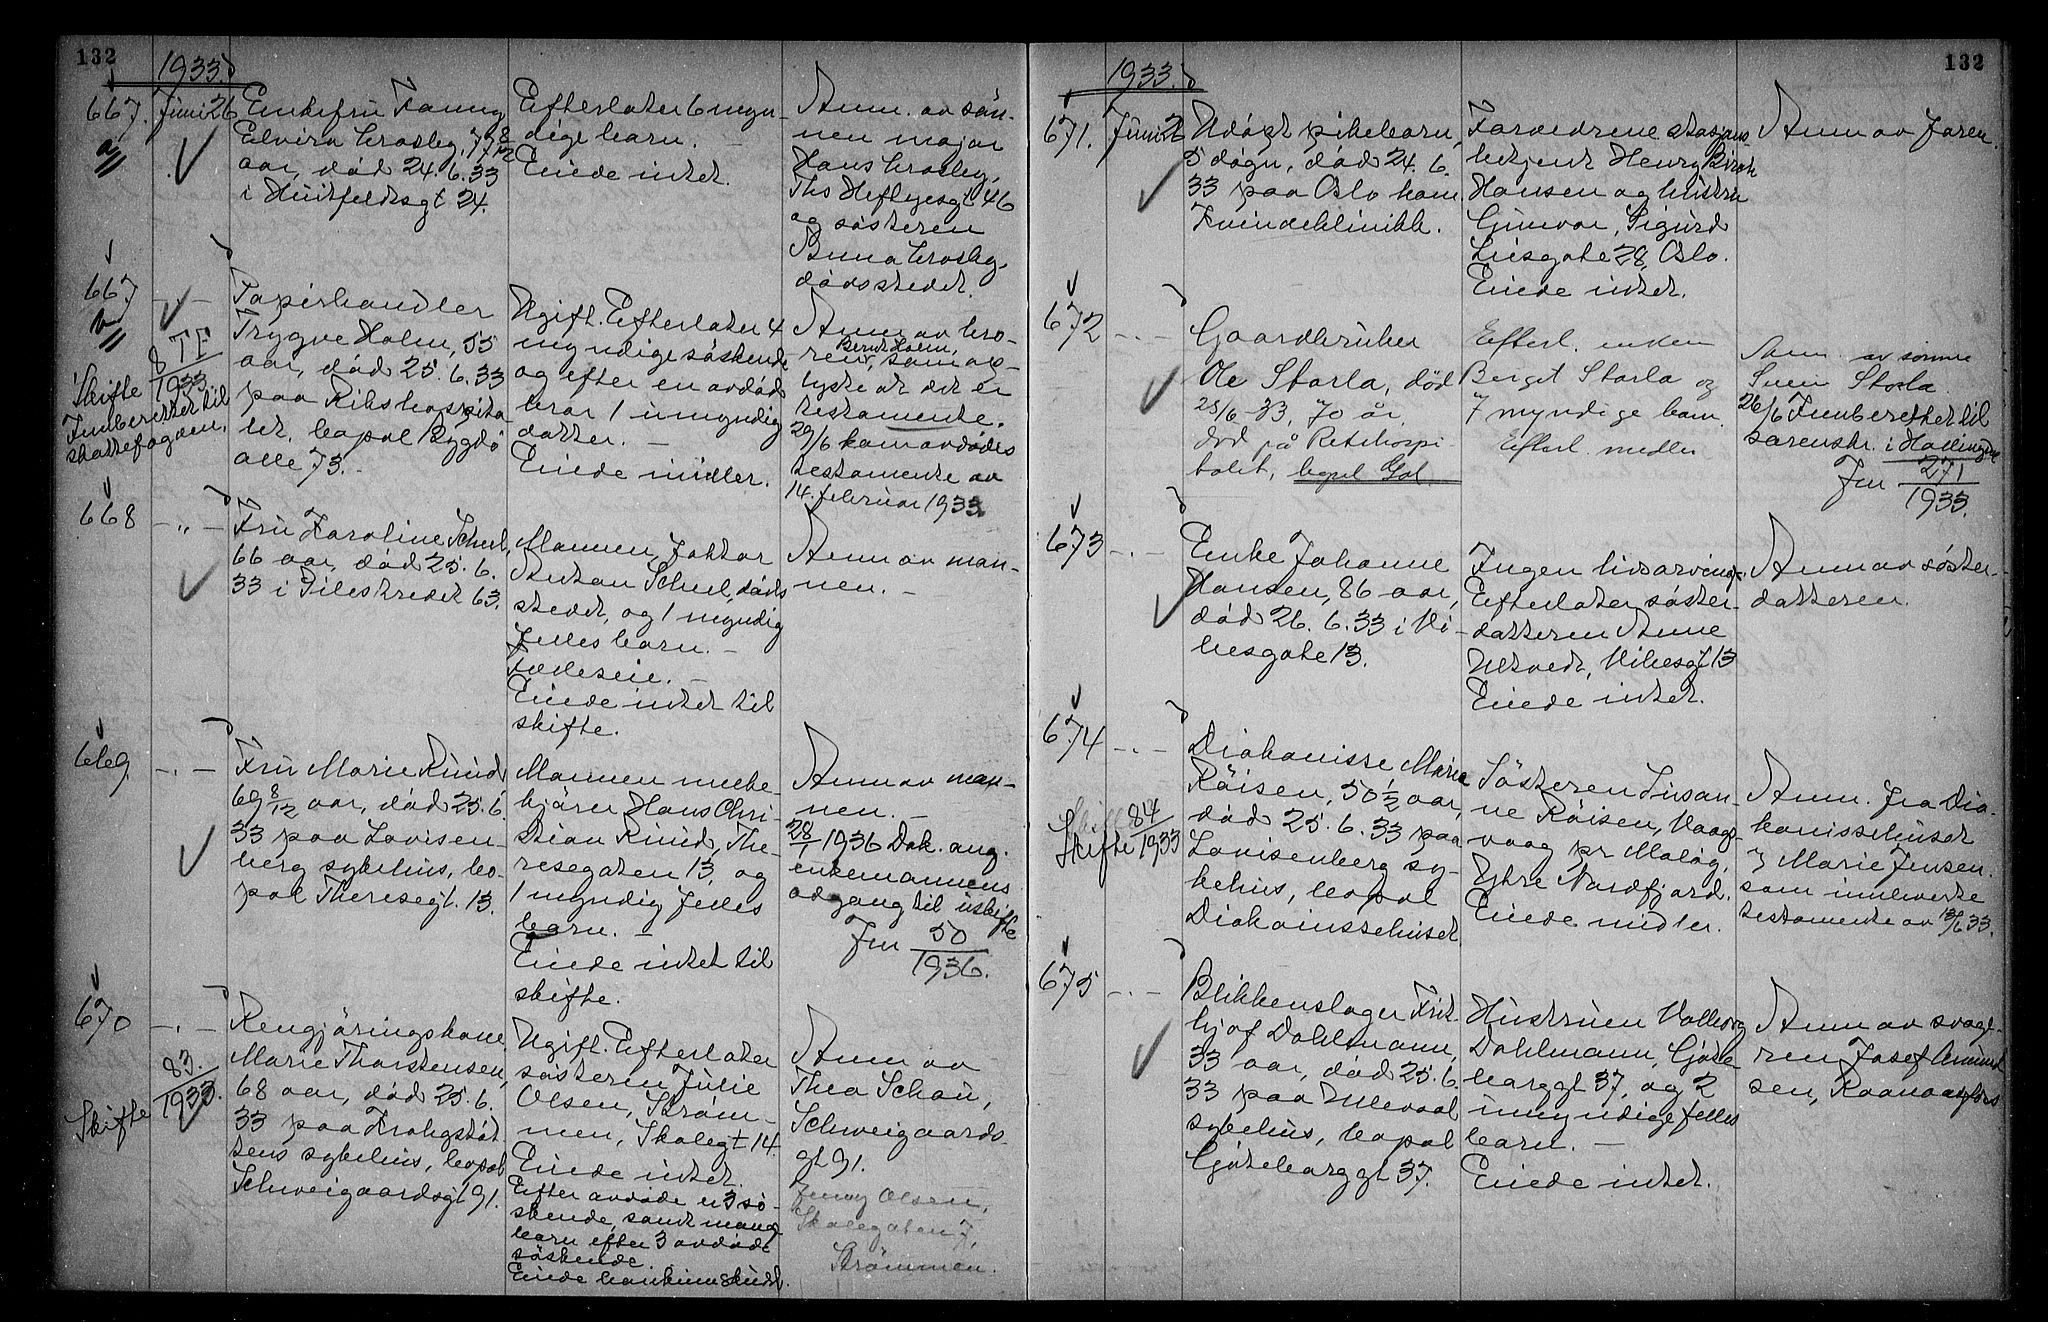 132
1933.
667. a
Juni 26
Enkefru Fanny
Elvira Crosby, 77 8/12
aar, død 24.6.33
i Huitfeldtsgt 24.
Efterlater 6 myn-
dige barn. —
Eiede intet.
Anm. av søn-
nen major
Hans Crosby,
Ths Heftyesgt 46
og søsteren
Crosby,
dødsstedet.
667 b
Skifte 8 TE/1933.
Innberettet til
skattefogden.
Papirhandler
Trygve Holm, 55
aar, død 25.6.33
paa Rikshospita
let, bopæl Bygdø
alle 73.
Ugift. Efterlater 4
myndige søskende
og efter en avdød
bror 1 umyndig
datter. —
Eiede midler.
Anm. av bro-
ren, Bernt Holm, som op-
lyste at det er
testamente.
29/6 kom avdødes
testamente av
14. februar 1933.
668
— " —
Fru Karoline Scheel,
66 aar, død 25.6.
33 i Pilestredet 63.
Mannen, Doktor
Anton Scheel, døds
stedet, og 1 myndig
felles barn. —
Felleseie. —
Eiede intet til
skifte.
Anm av man-
nen. —
669
— . —
Fru Marie Ruud
69 8/12 aar, død 25.6.
33 paa Lovisen-
berg sykehus, bo-
pæl Theresegt. 13.
Mannen
Hans Chri-
stian Ruud, The-
resegaten 13, og
1 myndig felles
barn. —
Eiede intet til
skifte.
Anm av man-
nen. —
28/1 1936 Dok. ang.
enkemannens
adgang til uskifte
Jnr 50/1936.
670
— . —
83./1933.
Skifte
Rengjøringskone
Marie Thorstensen,
68 aar, død 25.6.
33 paa Prohgstøt
sens sykehus, bopæl
Schweigaardsgt 91.
Ugift. Efterlater
søsteren Julie
Olsen, Strøm-
men, Skolegt 14.
Eiede intet.
Efter avdøde er 3 sø-
skende, samt mange
barn efter 3 avdøde
søskende.
Eiede
Anm av
Thea Schau,
Schweigaards-
gt 91.
Jenny Olsen,
Skolegaten 7,
Strømmen.
132
1933.
671.
Juni 26
Udøpt pikebarn,
5 døgn, død 24.6.
33 paa Oslo kom.
Kvindeklinikk.
Forældrene stasjons
betjent Henry
Hansen og hustru
Gunvor, Sigurd
Liesgate 28, Oslo.
Eiede intet.
Anm av faren.
672
— . —
Gaardbruker
Ole Storla, død
25/6 33, 70 år
død på Rikshospi
talet, bopel Gol.
Efterl. enken
Bergit Storla og
7 myndige barn.
Efterl. midler
Anm. av sønnen
Svein Storla
26/6 Innberettet til
sorenskr. i Hallingdal
Jnr 271/1933.
673
— . —
Enke Johanne
Hansen, 86 aar,
død 26.6.33 i Vi-
besgate 13.
Ingen livsarving.
Efterlater søster-
datteren Anne
Utvedt, Vibesgt 13
Eiede intet.
Anm av søster-
datteren.
674
— . —
84/1933
Skifte
Diakonisse Marie
Røisen, 50 1/2 aar,
død 25.6.33 paa
Lovisenberg sy-
kehus, bopæl
Diakonissehuset.
Søsteren Susan-
ne Røisen, Vaags-
vaag pr Måløy,
Ytre Nordfjord.
Eiede midler.
Anm. fra Dia-
konissehuset
v/ Marie Jensen.
som innleverte
testamente av 13/6 33.
675
— . —
Blikkenslager Frit-
hjof Dahlmann,
33 aar, død 25.6.
33 paa Ullevaal
sykehus, bopæl
Gøteborggt 37.
Hustruen Valborg
Dahlmann, Gøte
borggt 37, og 2
umyndige felles
barn. —
Eiede intet.
Anm av svoge-
ren Josef Amund
sen,